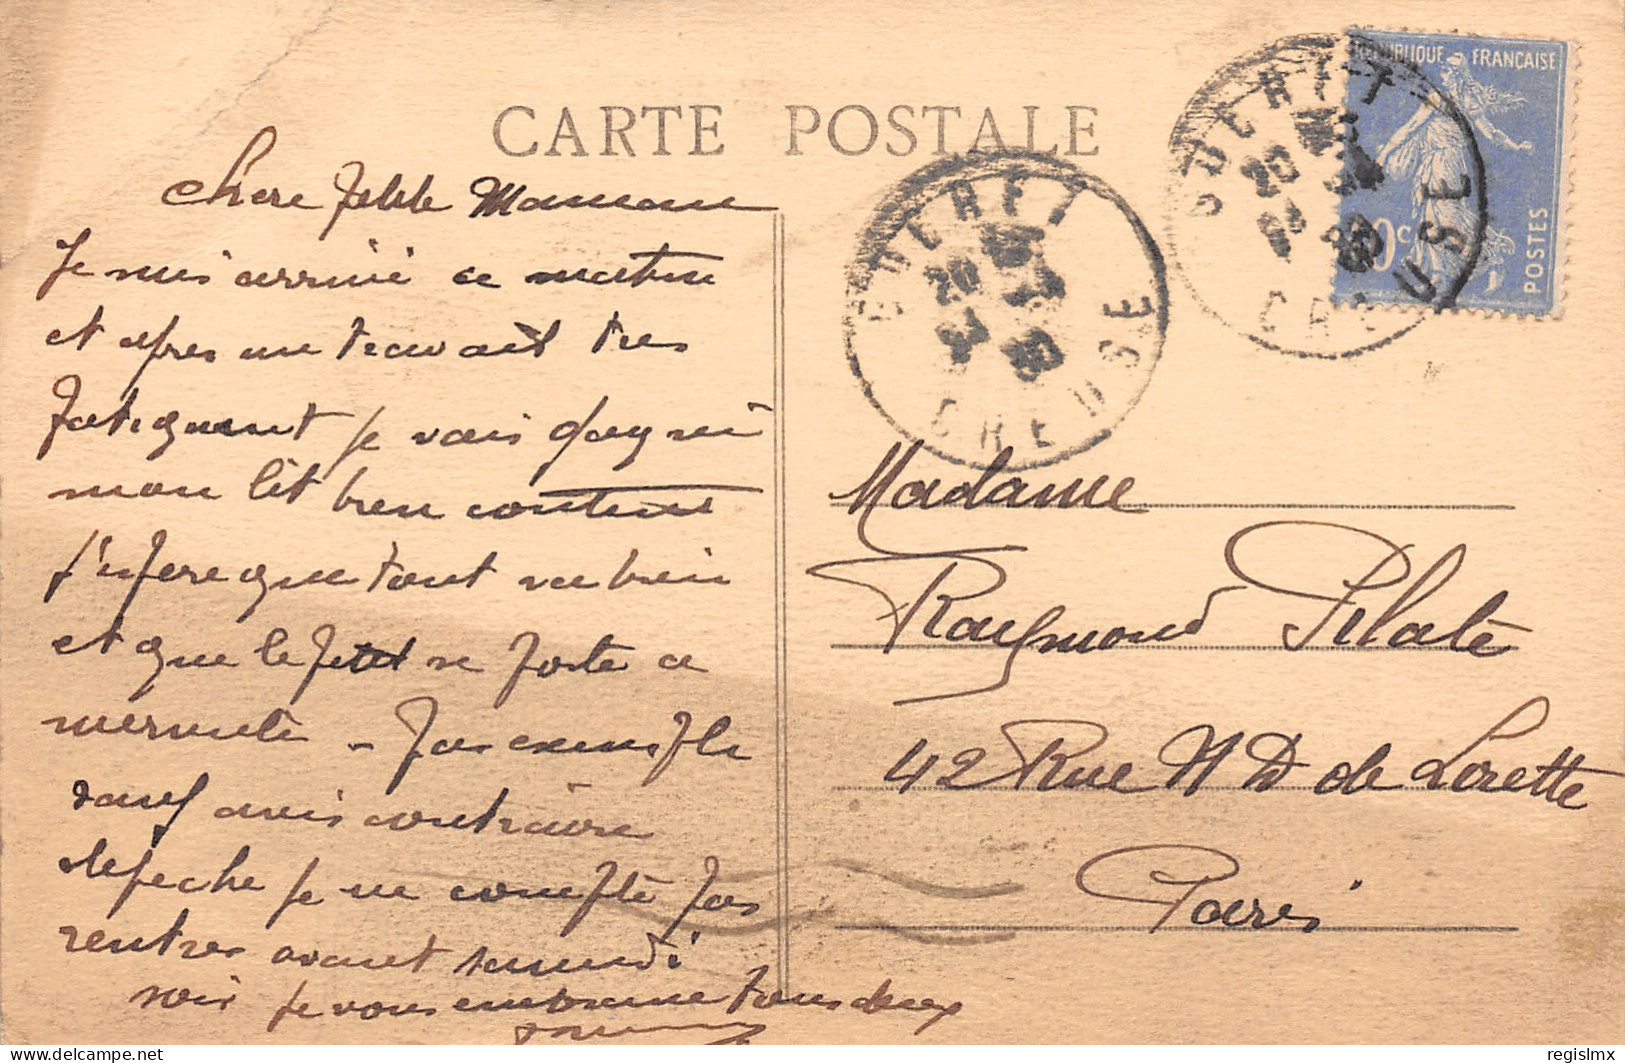 CARTE POSTALE
REPUBLIQUE FRANÇAISE
0c
POSTES
GUERET
20
CREUSE
GUERET
20
CREUSE
Chere Petite Maman
Je suis arrivé ce matin
et apres un travail tres
fatiguant je vais gagner
mon lit bien content
j'espere que tout va bien
et que le petit se porte a
merveille - Par exemple
sauf avis contraire
depeche je ne compte pas
rentrer avant samedi
soir je vous embrasse tous deux
Madame
Raymond Pilate
42 Rue N D de Lorette
Paris
delcampe.net
regislmx